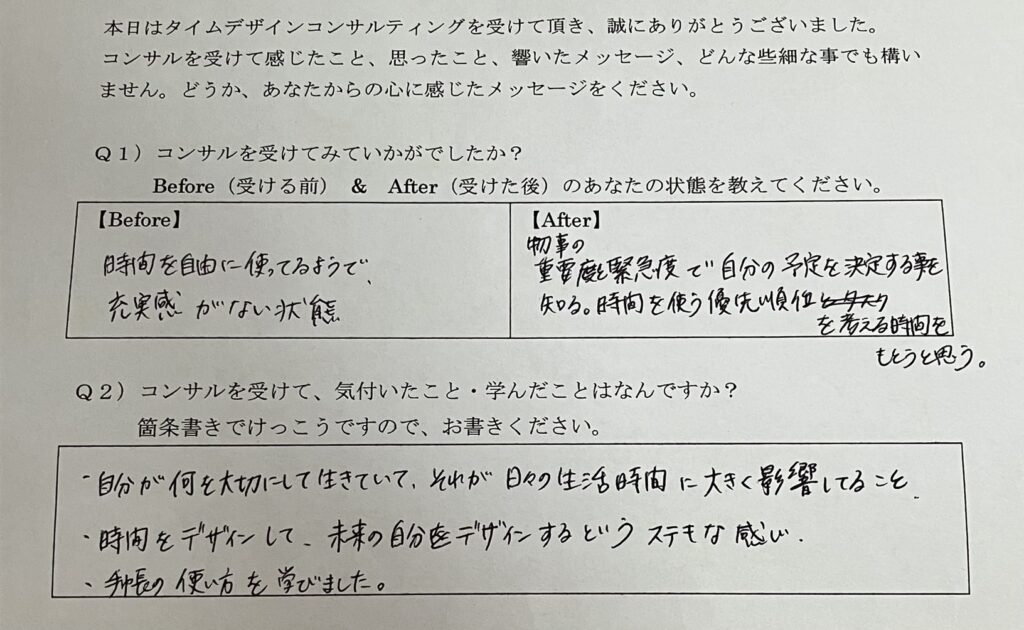 本日はタイムデザインコンサルティングを受けて頂き、誠にありがとうございました。
コンサルを受けて感じたこと、思ったこと、響いたメッセージ、どんな些細な事でも構い
ません。どうか、あなたからの心に感じたメッセージをください。
Q1）コンサルを受けてみていかがでしたか？
Before（受ける前） & After（受けた後）のあなたの状態を教えてください。
【Before】
時間を自由に使ってるようで、
充実感がない状態
【After】
物事の
重要度と緊急度で自分の予定を決定する事を
知る。時間を使う優先順位
を考える時間を
もとうと思う。
Q2）コンサルを受けて、気付いたこと・学んだことはなんですか？
箇条書きでけっこうですので、お書きください。
・自分が何を大切にして生きていて、それが日々の生活時間に大きく影響してること、
・時間をデザインして、未来の自分をデザインするというステキな感じ、
・手帳の使い方を学びました。